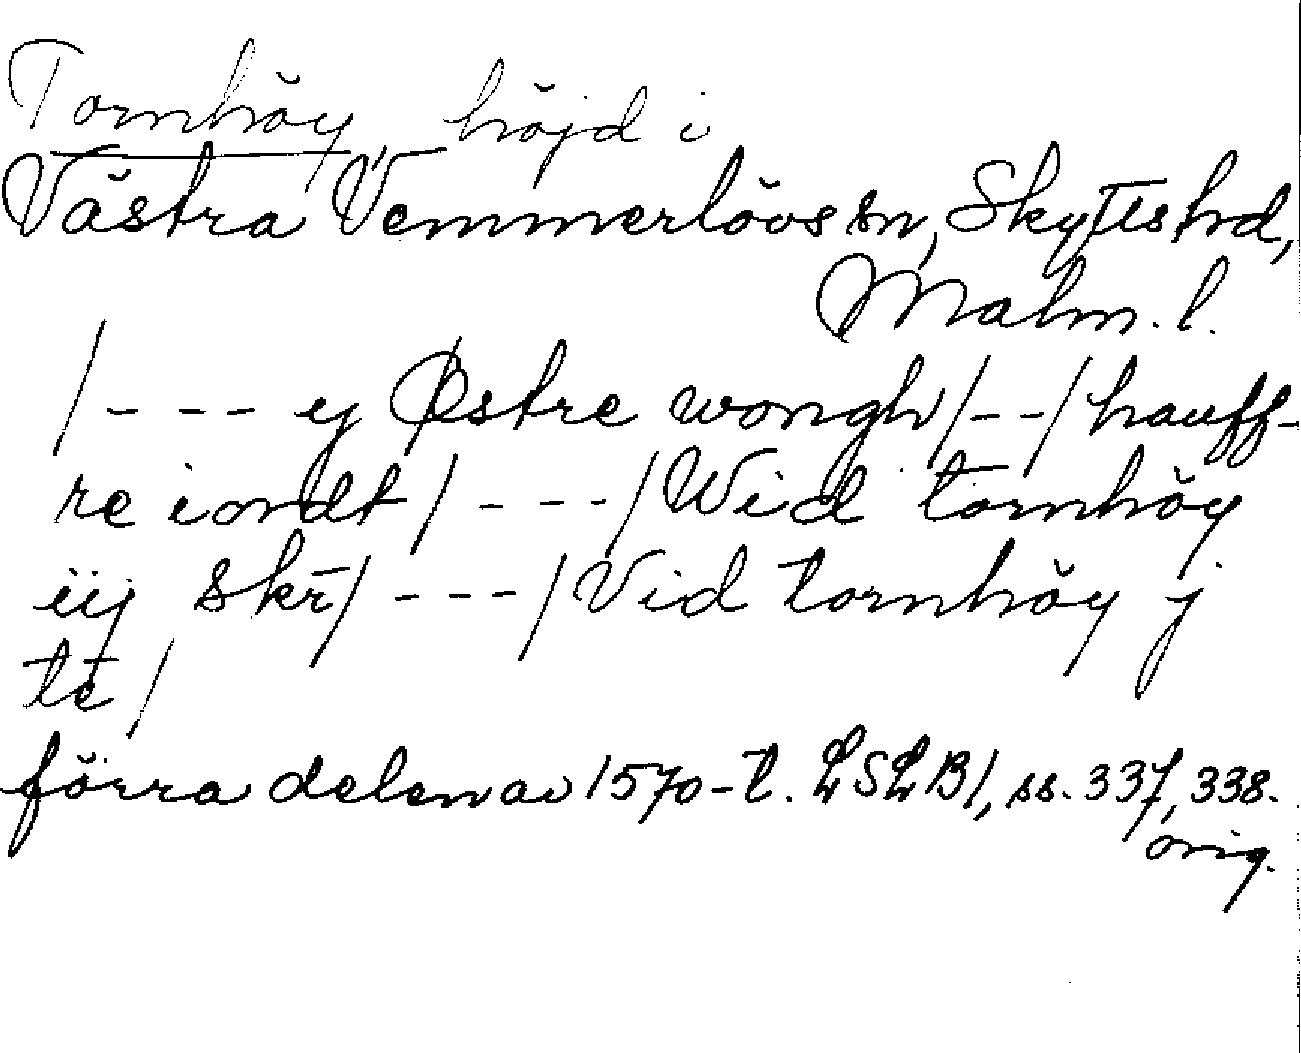 Tornhöy höjd i
Västra Vemmerlövs sn, Skytts hd,
Malm. l.
/- - - ey Østre wongh/- -/ hauff-
re iordt/- - -/ Wid tornhöy
iij skr̄/- - -/ Vid tornhöy j
tē/
förra delen av 1570-t. LSLB1, ss. 337, 338.
orig.